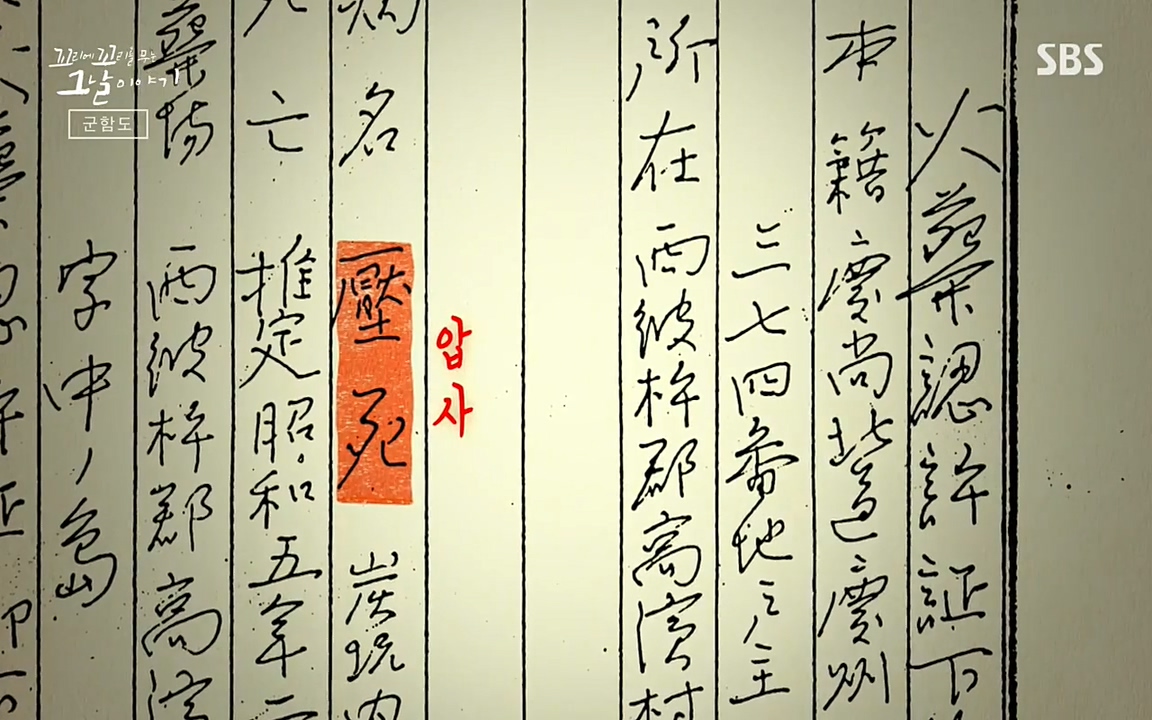 꼬리에 꼬리를 무는
그날 이야기
군함도
SBS
火葬認許証下
本籍 慶尚北道慶州
三七四番地
所在 西彼杵郡高濱村
압사
病名 壓死 炭坑内
死亡 推定昭和五年二
葬場 西彼杵郡高濱
字中ノ島